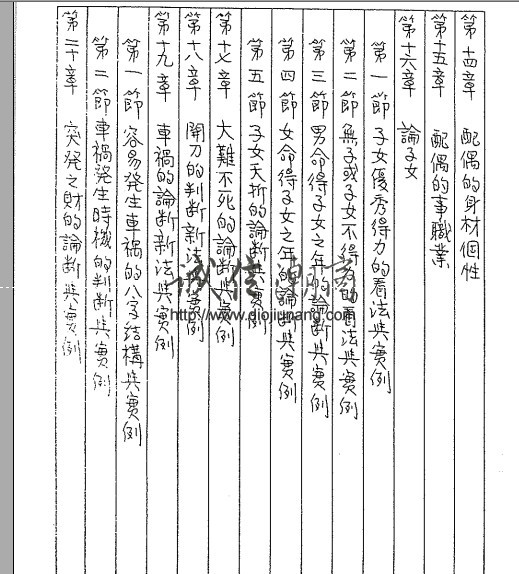 第十四章 配偶的身材個性
第十五章 配偶的事職業
第十六章 論子女
第一節 子女優秀得力的看法與實例
第二節 無子或子女不得力的看法與實例
第三節 男命得子女之年的論斷與實例
第四節 女命得子女之年的論斷與實例
第五節 子女夭折的論斷與實例
第十七章 大難不死的論斷與實例
第十八章 開刀的判斷新法與實例
第十九章 車禍的論斷新法與實例
第一節 容易發生車禍的八字結構與實例
第二節 車禍發生時機的判斷與實例
第二十章 突發之財的論斷與實例
誠信
http://www.diojiunang.com